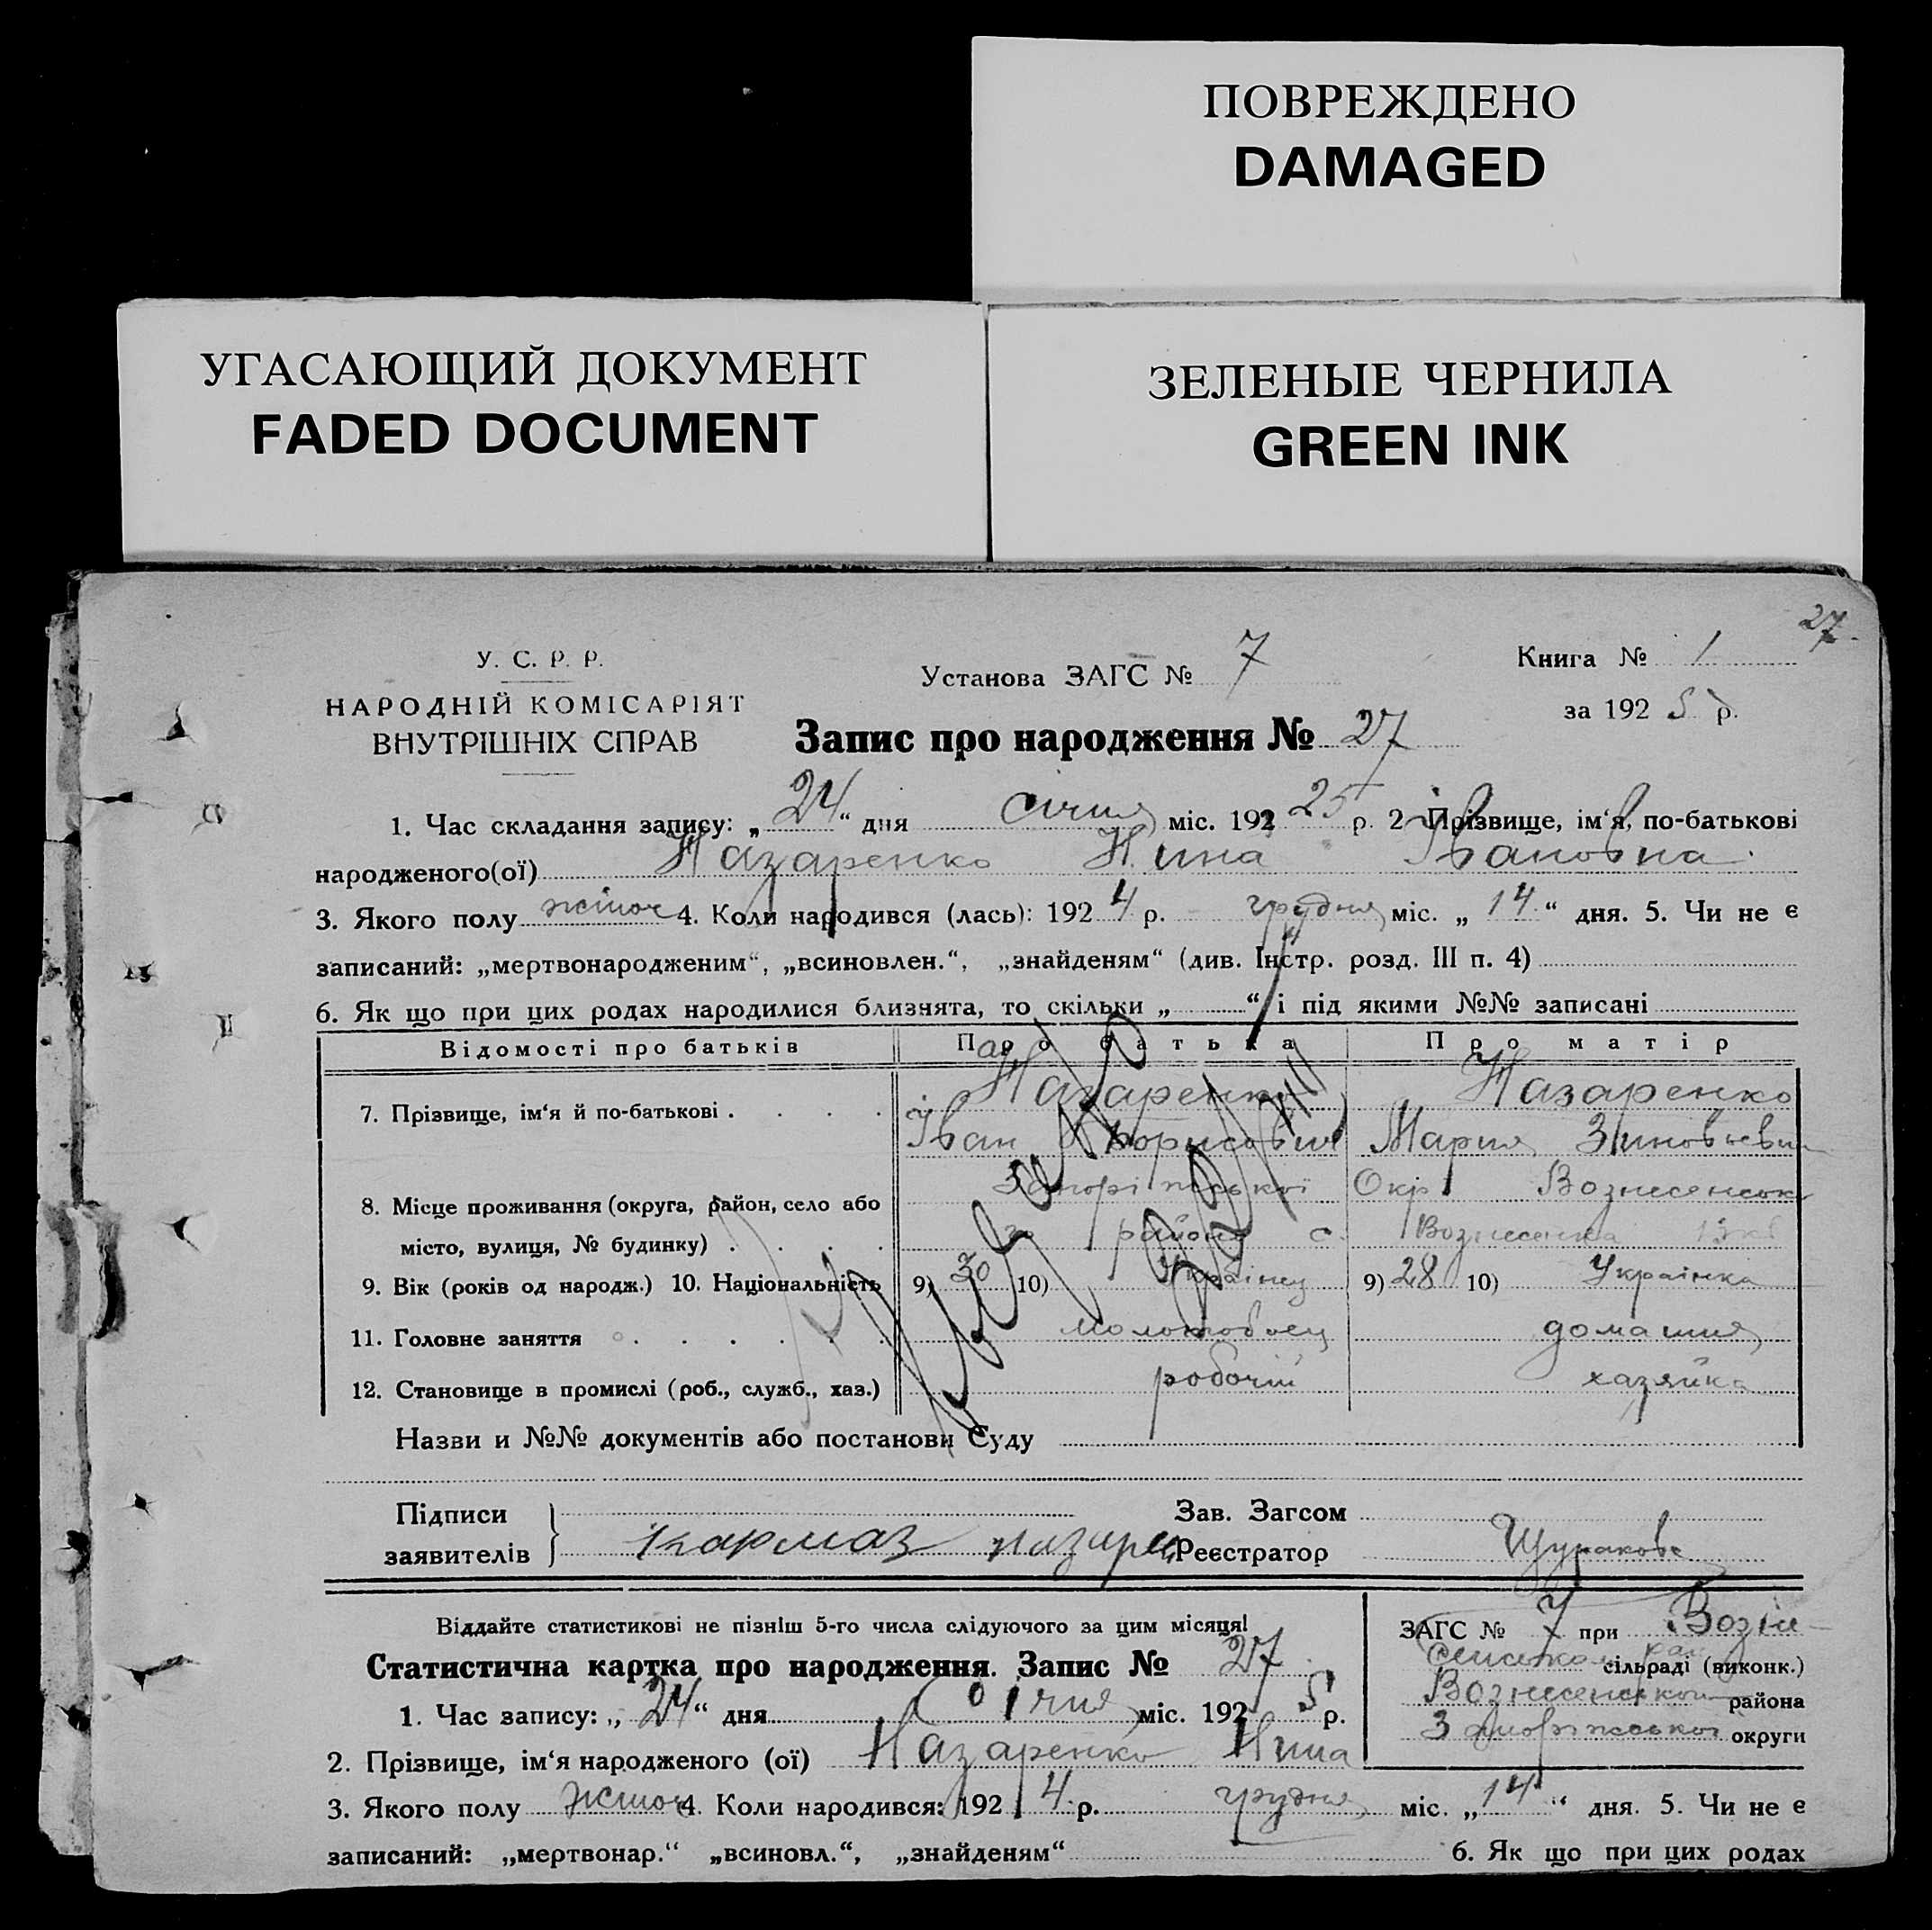 ПОВРЕЖДЕНО
DAMAGED
УГАСАЮЩИЙ ДОКУМЕНТ
FADED DOCUMENT
ЗЕЛЕНЫЕ ЧЕРНИЛА
GREEN INK
27.
У. С. Р. Р.
НАРОДНІЙ КОМІСАРІЯТ
ВНУТРІШНІХ СПРАВ
Установа ЗАГС № 7
Книга № 1
за 192 5 р.
Запис про народження № 27
1. Час складання запису: „ 24 “ дня січня міс. 192 25 р. 2 Прізвище, ім‘я, по-батькові
народженого(ої) Назаренко Нина Івановна.
3. Якого полу жіноч 4. Коли народився (лась): 192 4 р. грудня міс. „ 14 “ дня. 5. Чи не є
записаний: „мертвонародженим“, „всиновлен.“, „знайденям“ (див. Інстр. розд. III п. 4)
6. Як що при цих родах народилися близнята, то скільки „ “ і під якими №№ записані
Відомості про батьків Про батька Про матір
7. Прізвище, ім‘я й по-батькові . . . . Назаренко Назаренко
Іван Борисович Мария Зиновьевн
8. Місце проживання (округа, район, село або Запоріжської Окр Вознесенськ
місто, вулиця, № будинку) . . . . го района с. Вознесенка
9. Вік (років од народж.) 10. Національність 9) 30 10) Українец 9) 28 10) Українка
11. Головне заняття . . . . . Молотобоец домашня
12. Становище в промислі (роб., служб., хаз.) робочій хазяйка
Назви и №№ документів або постанови Суду
Підписи
заявителів } Кармаз
Зав. Загсом
Реєстратор
Віддайте статистикові не пізніш 5-го числа слідуючого за цим місяця!
Статистична картка про народження. Запис № 27
1. Час запису: „ 24 “ дня Січня міс. 192 5 р.
2. Прізвище, ім‘я народженого (ої) Назаренко Нина
ЗАГС № 7 при Возне-
сенском сільраді (виконк.)
Вознесенского района
Запоріжської округи
3. Якого полу жіноч 4. Коли народився: 192 4 р. грудня міс. „ 14 “ дня. 5. Чи не є
записаний: „мертвонар.“ „всиновл.“, „знайденям“ 6. Як що при цих родах